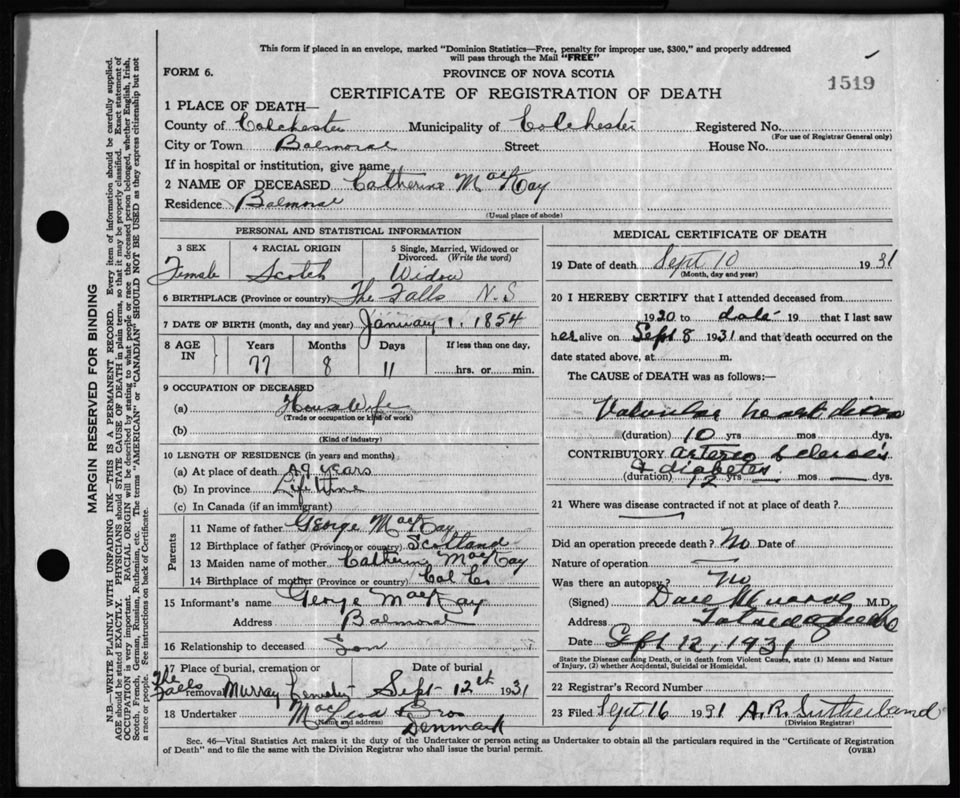 This form if placed in an envelope, marked "Dominion Statistics—Free, penalty for improper use, $300," and properly addressed
will pass through the Mail "FREE"
FORM 6.
PROVINCE OF NOVA SCOTIA
1519
CERTIFICATE OF REGISTRATION OF DEATH
1 PLACE OF DEATH—
County of Colchester Municipality of Colchester Registered No.
(For use of Registrar General only)
City or Town Balmoral Street House No.
If in hospital or institution, give name
2 NAME OF DECEASED Catherine MacKay
Residence Balmoral
(Usual place of abode)
PERSONAL AND STATISTICAL INFORMATION
3 SEX 4 RACIAL ORIGIN 5 Single, Married, Widowed or
Divorced. (Write the word)
Female Scotch Widow
6 BIRTHPLACE (Province or country) The Falls N.S
7 DATE OF BIRTH (month, day and year) January 1. 1854
8 AGE IN Years Months Days If less than one day,
77 8 11 hrs. or min.
9 OCCUPATION OF DECEASED
(a) House Wife
(Trade or occupation or kind of work)
(b)
(Kind of industry)
10 LENGTH OF RESIDENCE (in years and months)
(a) At place of death 49 years
(b) In province Life time
(c) In Canada (if an immigrant)
Parents
11 Name of father George MacKay
12 Birthplace of father (Province or country) Scotland
13 Maiden name of mother Catherine MacKay
14 Birthplace of mother (Province or country) Col Co
15 Informant's name George MacKay
Address Balmoral
16 Relationship to deceased Son
17 Place of burial, cremation or Date of burial
The Falls
removal Murray Cemetery Sept 12th 1931
18 Undertaker MacLeod Bros
(Name and address)
Denmark
MEDICAL CERTIFICATE OF DEATH
19 Date of death Sept 10 1931
(Month, day and year)
20 I HEREBY CERTIFY that I attended deceased from
1920 to date 19 that I last saw
her alive on Sept 8 1931 and that death occurred on the
date stated above, at m.
The CAUSE of DEATH was as follows:
Valvular heart disease
(duration) 10 yrs mos dys.
CONTRIBUTORY arterio sclerosis
& diabetes
(duration) 12 mos dys.
21 Where was disease contracted if not at place of death?
Did an operation precede death? No Date of
Nature of operation
Was there an autopsy? No
(Signed) M.D.
Address Tatamagouche
Date Sept 12, 1931
State the Disease causing Death, or in death from Violent Causes, state (1) Means and Nature
of Injury, (2) whether Accidental, Suicidal or Homicidal.
22 Registrar's Record Number
23 Filed Sept 16 1931 A. R. Sutherland
(Division Registrar)
Sec. 46—Vital Statistics Act makes it the duty of the Undertaker or person acting as Undertaker to obtain all the particulars required in the "Certificate of Registration
of Death" and to file the same with the Division Registrar who shall issue the burial permit.
(OVER)
MARGIN RESERVED FOR BINDING
N.B.—WRITE PLAINLY WITH UNFADING INK—THIS IS A PERMANENT RECORD. Every item of information should be carefully supplied.
AGE should be stated EXACTLY. PHYSICIANS should STATE CAUSE OF DEATH in plain terms, so that it may be properly classified. Exact statement of
OCCUPATION is very important. RACIAL ORIGIN will be described by stating to what people or race the deceased person belonged, whether English, Irish,
Scotch, French, German, Russian, Ruthenian, etc. The terms "AMERICAN" or "CANADIAN" SHOULD NOT BE USED as they express citizenship but not
a race or people. See instructions on back of Certificate.